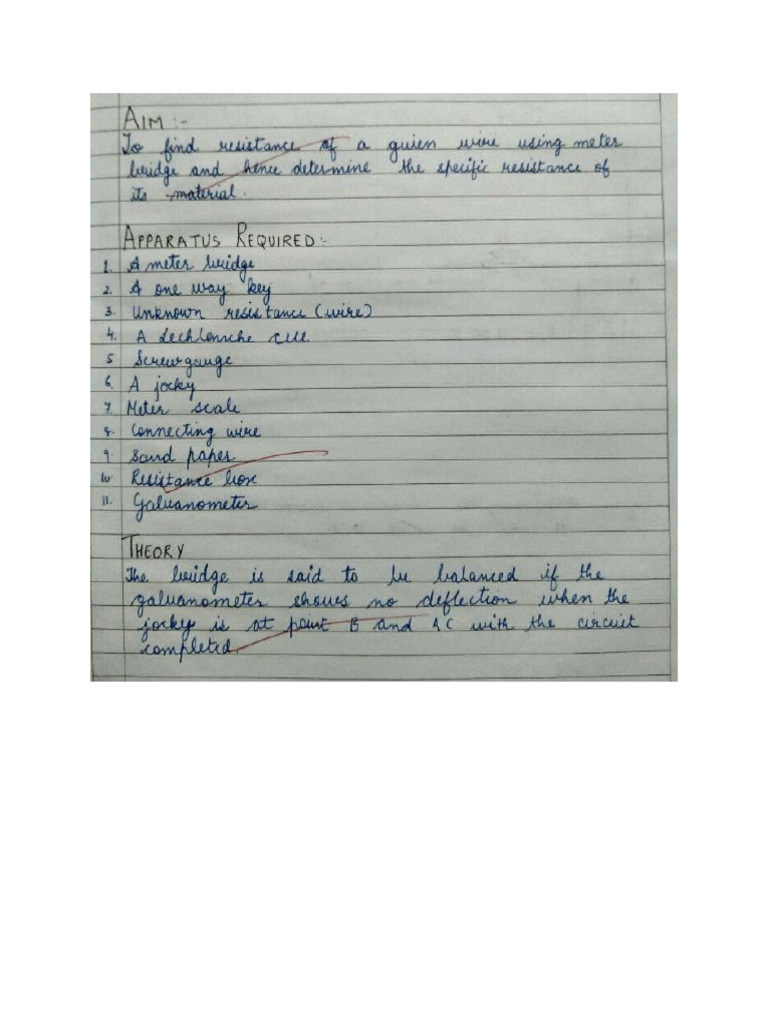 AIM :-
To find resistance of a given wire using meter
bridge and hence determine the specific resistance of
its material.
APPARATUS REQUIRED :-
1. A meter bridge
2. A one way key
3. Unknown resistance (wire)
4. A Lechlanche cell
5 Screwgauge
6. A jocky
7. Meter scale
8. Connecting wire
9. Sand paper
10. Resistance box
11. Galvanometer
THEORY
The bridge is said to be balanced if the
galvanometer shows no deflection when the
jocky is at point B and AC with the circuit
completed.